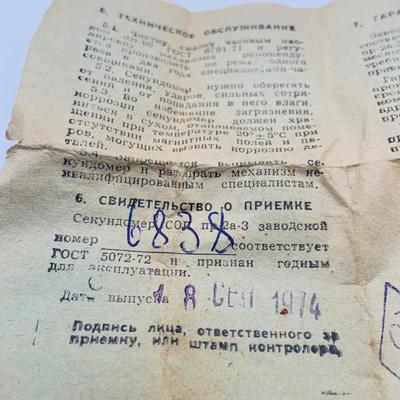 5. ТЕХНИЧЕСКОЕ ОБСЛУЖИВАНИЕ
7. ГАРА
5.1. Чистку, смазку часовым мас-
ГОСТ 8781-71 и регу-
механизма рекоменду-
ре одного
раза в два года специалистами-ча-
совщиками.
5.2. Секундомер нужно оберегать
от падений, и ударов, сильных сотря-
сений и от попадания в него влаги.
5.3. Во избежание загрязнения,
коррозии секундомер должен хра-
ниться в сухом, отапливаемом поме-
щении при температуре 20°±5°С при
отсутствии магнитных полей и па-
ров, могущих вызвать коррозию де-
талей.
5.4. Запрещается вскрывать се-
кундомер и разбирать механизм не-
квалифицированным специалистам.
6. СВИДЕТЕЛЬСТВО О ПРИЕМКЕ
Секундомер СОП пр-2а-3 заводской
номер 6838 соответствует
ГОСТ 5072-72 и признан годным
для эксплуатации.
Дата выпуска 18 СЕН 1974
Подпись лица, ответственного за
приемку, или штамп контролера